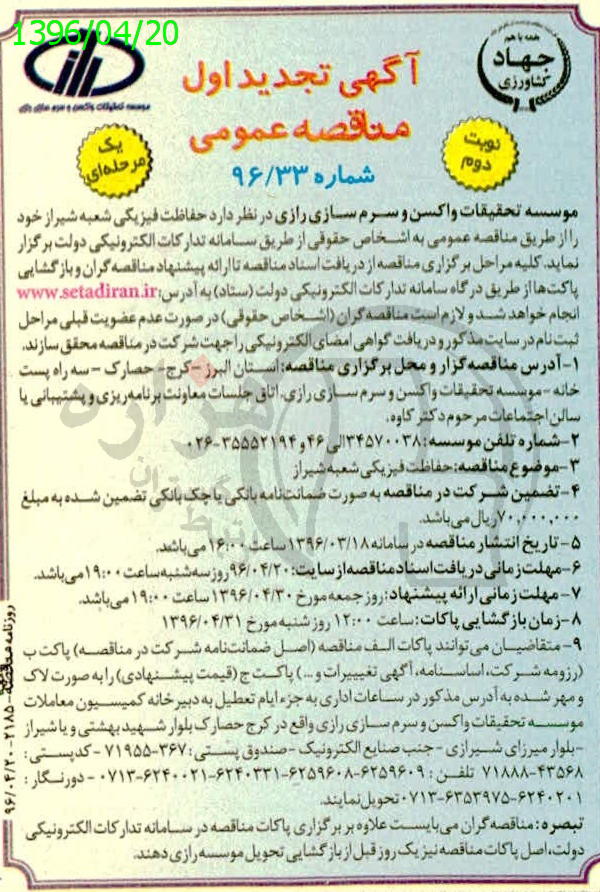 1396/04/20
همه با هم
جهاد
کشاورزی
موسسه تحقیقات واکسن و سرم سازی رازی
آگهی تجدید اول
مناقصه عمومی
شماره ۹۶/۳۳
نوبت
دوم
یک
مرحله‌ای
موسسه تحقیقات واکسن و سرم سازی رازی در نظر دارد حفاظت فیزیکی شعبه شیراز خود
را از طریق مناقصه عمومی به اشخاص حقوقی از طریق سامانه تدارکات الکترونیکی دولت برگزار
نماید. کلیه مراحل برگزاری مناقصه از دریافت اسناد مناقصه تا ارائه پیشنهاد مناقصه گران و بازگشایی
پاکت‌ها از طریق درگاه سامانه تدارکات الکترونیکی دولت (ستاد) به آدرس: www.setadiran.ir
انجام خواهد شد و لازم است مناقصه گران (اشخاص حقوقی) در صورت عدم عضویت قبلی مراحل
ثبت نام در سایت مذکور و دریافت گواهی امضای الکترونیکی را جهت شرکت در مناقصه محقق سازند.
۱-آدرس مناقصه گزار و محل برگزاری مناقصه: استان البرز -کرج- حصارک - سه راه پست
خانه -موسسه تحقیقات واکسن و سرم سازی رازی، اتاق جلسات معاونت برنامه ریزی و پشتیبانی یا
سالن اجتماعات مرحوم دکتر کاوه.
۲-شماره تلفن موسسه: ۳۴۵۷۰۰۳۸الی ۴۶ و ۳۵۵۵۲۱۹۴-۰۲۶
۳-موضوع مناقصه: حفاظت فیزیکی شعبه شیراز
۴-تضمین شرکت در مناقصه به صورت ضمانت نامه بانکی یا چک بانکی تضمین شده به مبلغ
۷۰,۰۰۰,۰۰۰ریال می‌باشد.
۵- تاریخ انتشار مناقصه در سامانه ۱۳۹۶/۰۳/۱۸ ساعت ۱۶:۰۰ می‌باشد.
۶-مهلت زمانی دریافت اسناد مناقصه از سایت: ۹۶/۰۴/۲۰روز سه شنبه ساعت ۱۹:۰۰ می‌باشد.
۷-مهلت زمانی ارائه پیشنهاد: روز جمعه مورخ ۱۳۹۶/۰۴/۳۰ ساعت ۱۹:۰۰ می‌باشد.
۸-زمان بازگشایی پاکات: ساعت ۱۲:۰۰ روز شنبه مورخ ۱۳۹۶/۰۴/۳۱
۹- متقاضیان می توانند پاکات الف مناقصه (اصل ضمانت نامه شرکت در مناقصه) پاکت ب
(رزومه شرکت، اساسنامه، آگهی تغییرات و...) پاکت ج (قیمت پیشنهادی) را به صورت لاک
و مهر شده به آدرس مذکور در ساعات اداری به جزء ایام تعطیل به دبیرخانه کمیسیون معاملات
موسسه تحقیقات واکسن و سرم سازی رازی واقع در کرج حصارک بلوار شهید بهشتی و یا شیراز
-بلوار میرزای شیرازی - جنب صنایع الکترونیک -صندوق پستی: ۳۶۷-۷۱۹۵۵ - کدپستی:
۴۳۵۶۸-۷۱۸۸۸ تلفن: ۶۲۵۹۶۰۹-۶۲۵۹۶۰۸-۶۲۴۰۳۳۱-۶۲۴۰۰۲۱-۰۷۱۳ - دورنگار:
۶۲۴۰۲۰۱-۶۳۵۳۹۷۵-۰۷۱۳تحویل نمایند.
تبصره: مناقصه گران می‌بایست علاوه بر برگزاری پاکات مناقصه در سامانه تدارکات الکترونیکی
دولت، اصل پاکات مناقصه نیز یک روز قبل از بازگشایی تحویل موسسه رازی دهند.
۹۶/۰۴/۲۰ - ۲۱۸۵
هزاره